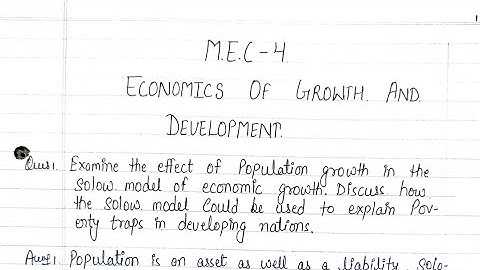 1
M.E.C-4.
ECONOMICS OF GROWTH. AND.
DEVELOPMENT.
Ques1. Examine the effect of Population growth in the
Solow model of economic growth. Discuss how
the Solow model Could be used to explain Pov-
erty traps in developing nations.
Ans1. Population is an asset as well as a liability. Solo-